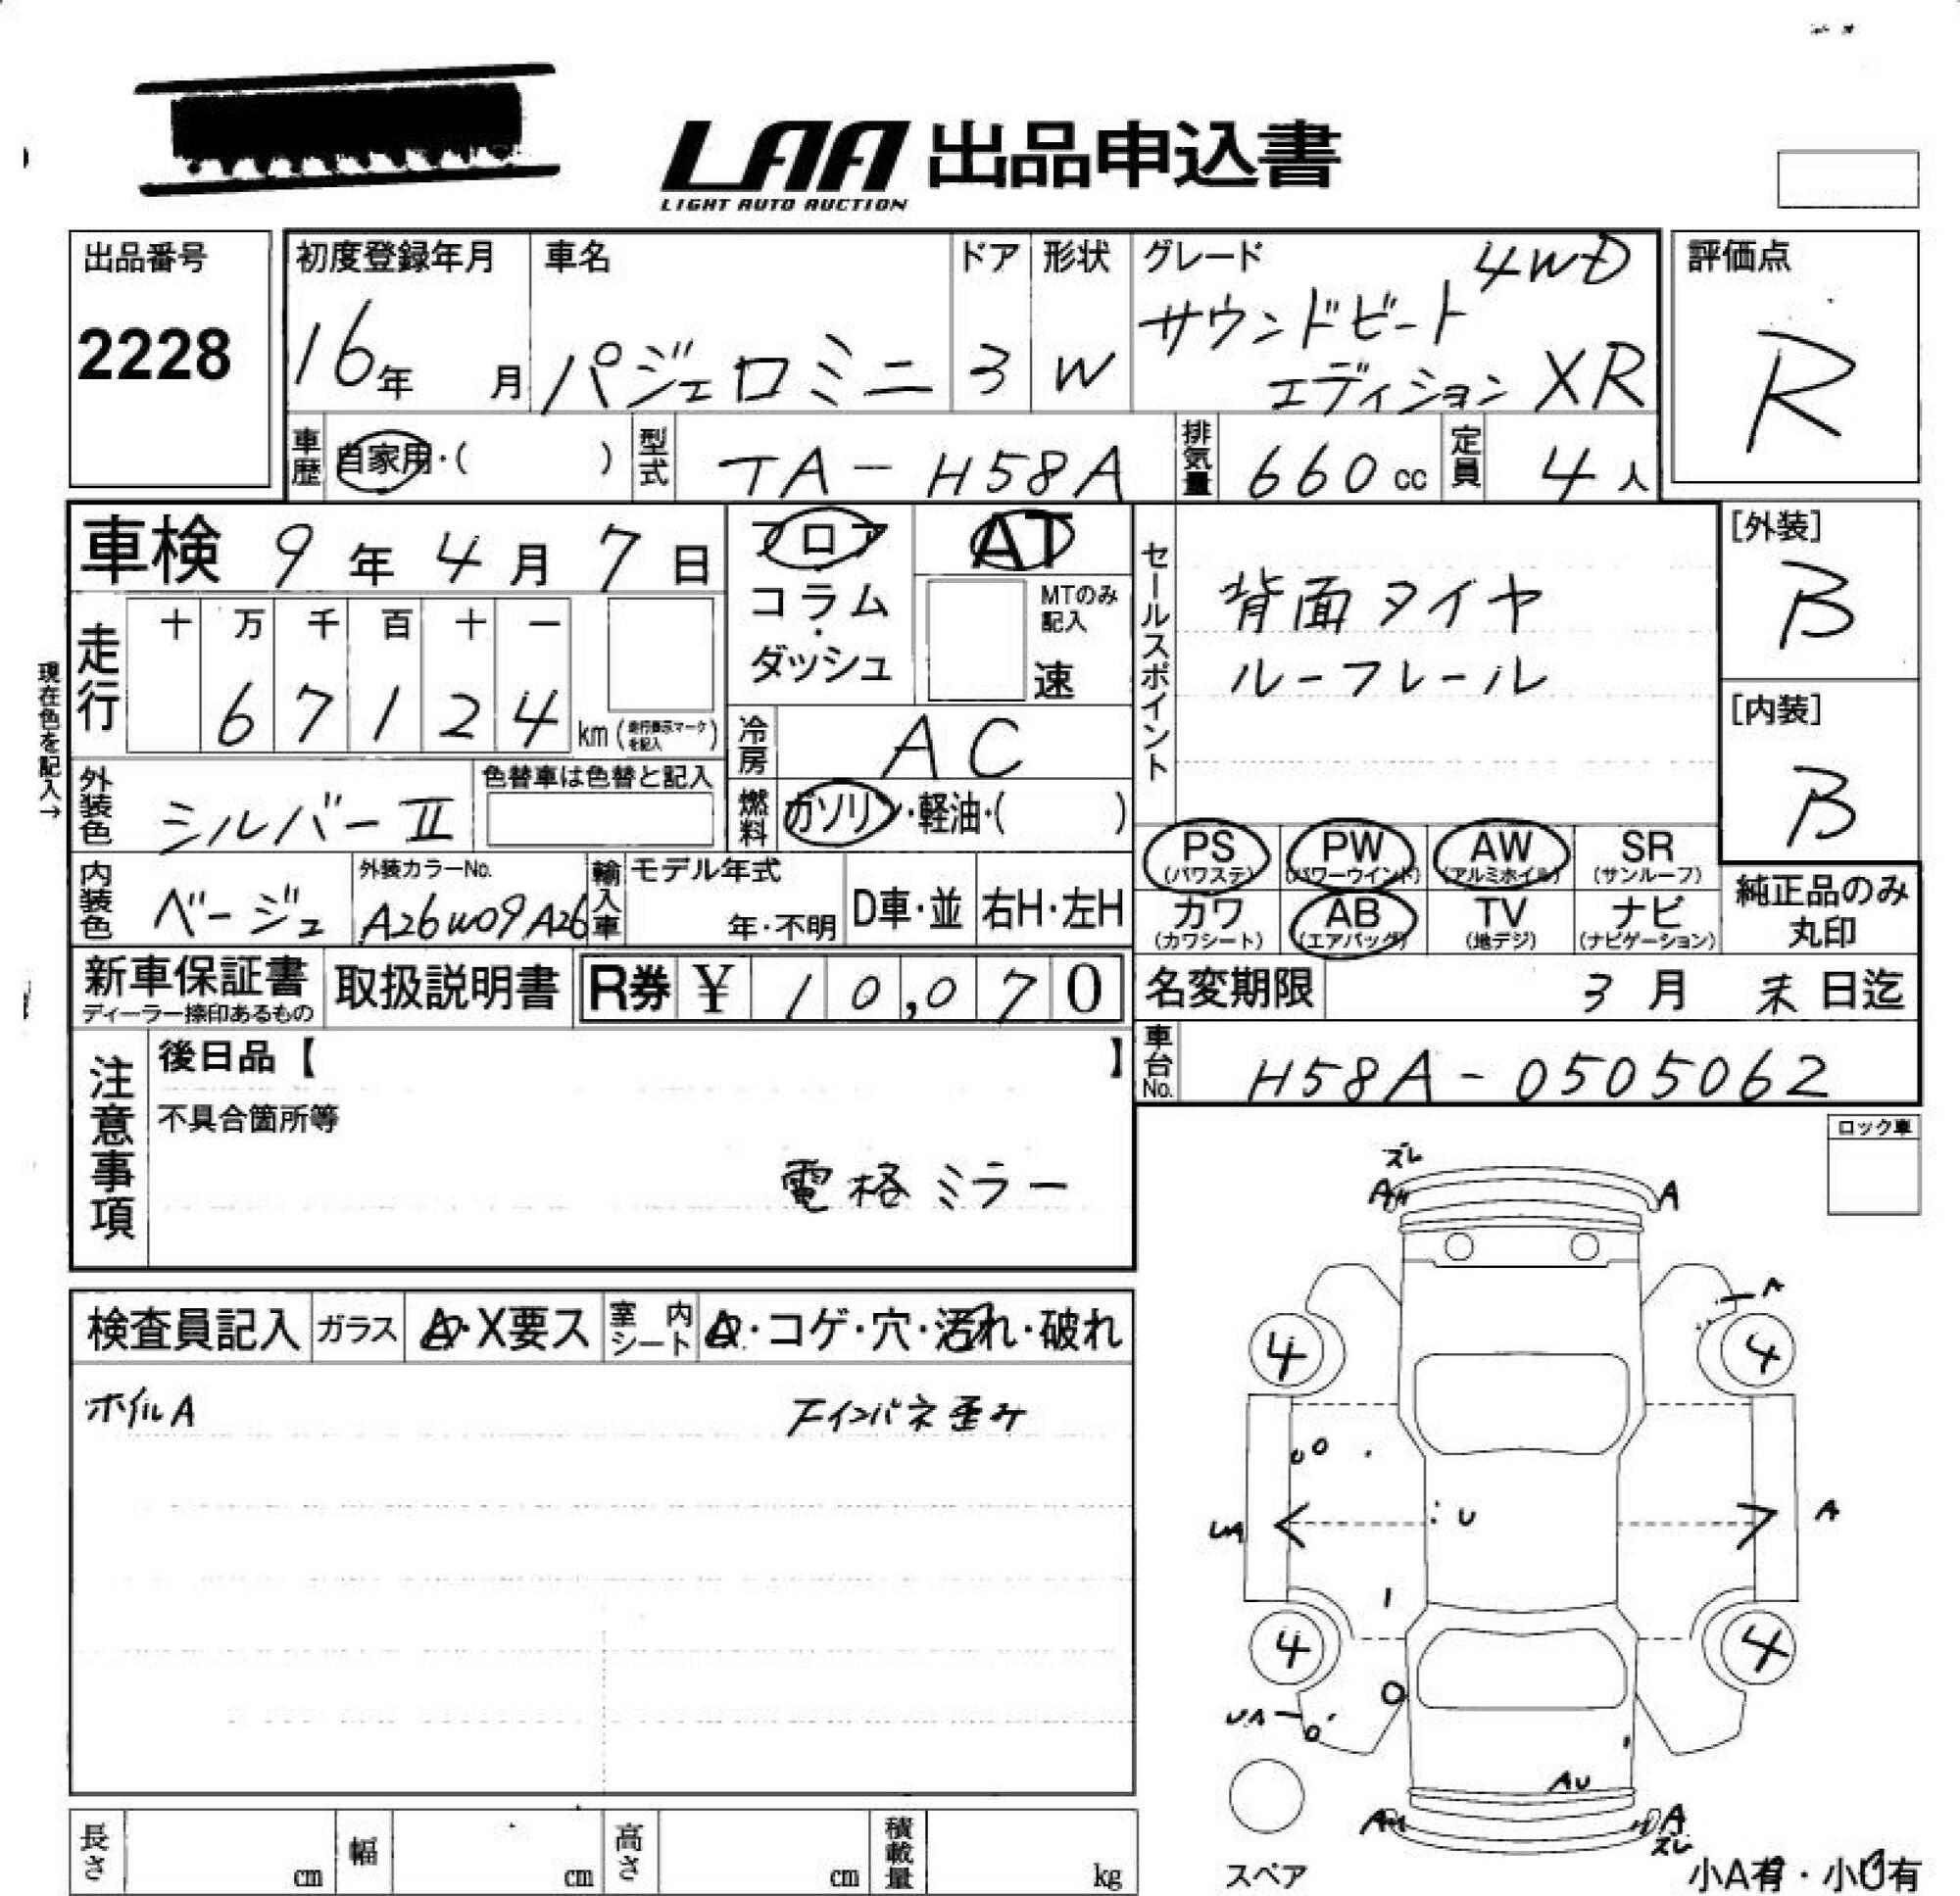 LAA 出品申込書
LIGHT AUTO AUCTION
出品番号
2228
初度登録年月
16年 月
車名
パジェロミニ
ドア
3
形状
W
グレード 4WD
サウンドビート
エディション XR
評価点
R
車歴 自家用・( )
型式 TA-H58A
排気量 660 cc
定員 4 人
車検 9年 4月 7日
フロア
・
コラム
・
ダッシュ
AT
MTのみ
記入
速
セールスポイント
背面タイヤ
ルーフレール
[外装]
B
[内装]
B
現在色を記入→
走行
十 万 千 百 十 一
6 7 1 2 4 km (走行表示マークを記入)
冷房 AC
外装色 シルバーⅡ
色替車は色替と記入
燃料 ガソリン・軽油・( )
PS (パワステ)
PW (パワーウインド)
AW (アルミホイル)
SR (サンルーフ)
カワ (カワシート)
AB (エアバッグ)
TV (地デジ)
ナビ (ナビゲーション)
純正品のみ
丸印
内装色 ベージュ
外装カラーNo.
A26W09A26
輸入車
モデル年式
年・不明
D車・並
右H・左H
新車保証書
ディーラー捺印あるもの
取扱説明書
R券 ¥ 10,070
名変期限 3月 末日迄
車台No. H58A-0505062
注意事項
後日品【 】
不具合箇所等
電格ミラー
ロック車
検査員記入
ガラス
A・X要ス
室内シート
A・コゲ・穴・汚れ・破れ
ホイルA
Fインパネ歪み
ズレ
A
A
A
4
4
U
A
1
4
4
UA
AU
A
ズレ
スペア
小A有・小U有
長さ cm
幅 cm
高さ cm
積載量 kg